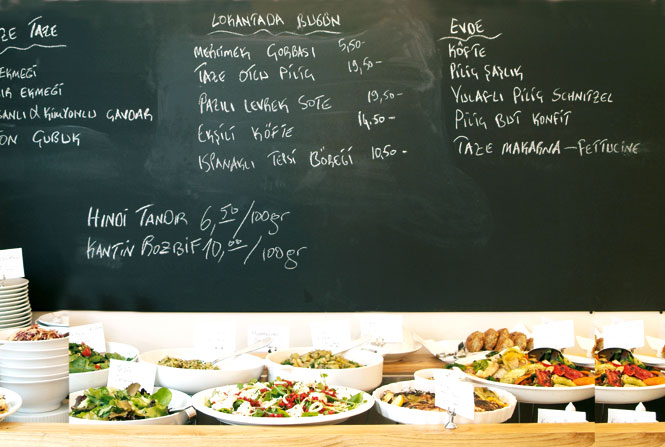 ZE TAZE
EKMEĞİ
IR EKMEĞİ
ANLI & KİMYONLU ÇAVDAR
ÖN ÇUBUK
LOKANTADA BUGÜN
MERCİMEK ÇORBASI 5,50-
TAZE OTLU PİLİÇ 19,50-
PAZILI LEVREK SOTE 19,50-
EKŞİLİ KÖFTE 14.50-
ISPANAKLI TEPSİ BÖREĞİ 10,50-
HİNDİ TANDIR 6,50/100gr
KANTİN ROZBİF 10,00/100gr
EVDE
KÖFTE
PİLİÇ ŞAŞLIK
YULAFLI PİLİÇ SCHNITZEL
PİLİÇ BUT KONFİT
TAZE MAKARNA - FETTUCINE